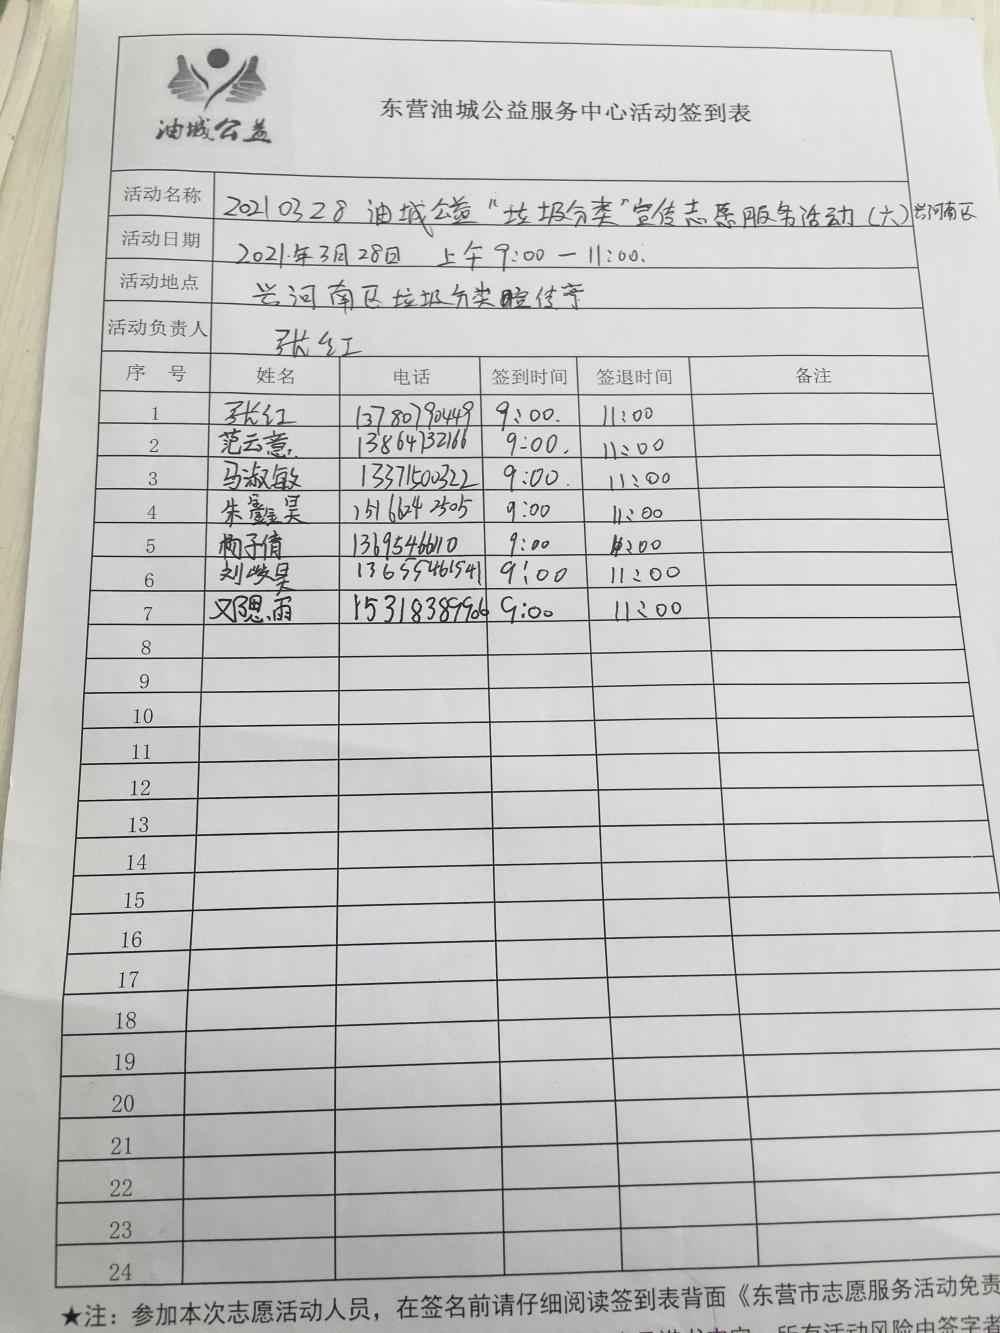 油城公益
东营油城公益服务中心活动签到表
活动名称 20210328 油城公益"垃圾分类"宣传志愿服务活动(六)兴河南区
活动日期 2021年3月28日 上午9:00一11:00.
活动地点 兴河南区垃圾分类宣传亭
活动负责人 张红
序 号 姓名 电话 签到时间 签退时间 备注
1 张红 13780790449 9:00. 11:00
2 范云意 13864732166 9:00. 11:00
3 马淑敏 13371500322 9:00. 11:00
4 朱鑫昊 15166242505 9:00 11:00
5 杨子倩 1369546610 9:00 11:00
6 刘峻昊 13655461541 9:00 11:00
7 邓思雨 15318389906 9:00 11:00
8
9
10
11
12
13
14
15
16
17
18
19
20
21
22
23
24
★注：参加本次志愿活动人员，在签名前请仔细阅读签到表背面《东营市志愿服务活动免责
所有活动风险由签字者